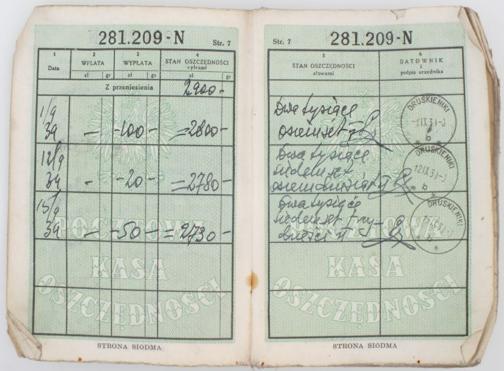 281.209-N Str. 7
1 2 3 4
Data WPŁATA WYPŁATA STAN OSZCZĘDNOŚCI
cyframi
zł gr zł gr zł gr
Z przeniesienia 2900-
1/9
39 - -100- =2800-
12/9
39 - -20- =2780-
15/9
39 - -50- =2730-
POCZTOWA
KASA
OSZCZĘDNOŚCI
STRONA SIODMA
Str. 7 281.209-N
5 6
STAN OSZCZĘDNOŚCI DATOWNIK
słowami i
podpis urzędnika
Dwa tysiące
osiemset zł
DRUSKIENIKI
b
Dwa tysiące
siedemset
osiemdziesiąt zł
DRUSKIENIKI
b
Dwa tysiące
siedemset trzy-
dzieści zł
DRUSKIENIKI
KASA
OSZCZĘDNOŚCI
STRONA SIODMA